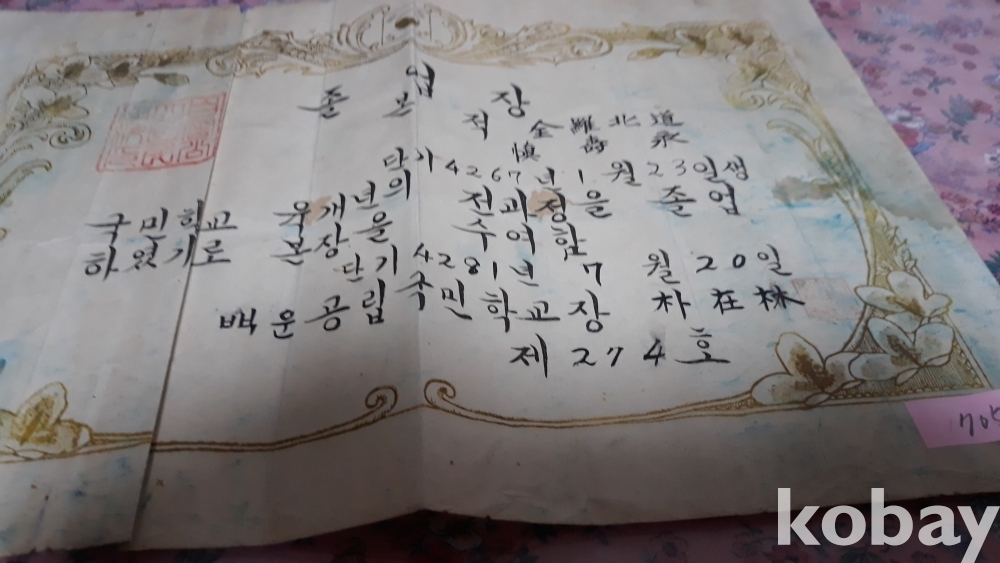 졸 업 장
본 적 全 羅 北 道
愼 壽 永
단기 4267년 1월 23일생
국민학교 육개년의 전과정을 졸업
하였기로 본장을 수여함
단기 4281년 7월 20일
백운공립국민학교장 朴在林
제274호
kobay